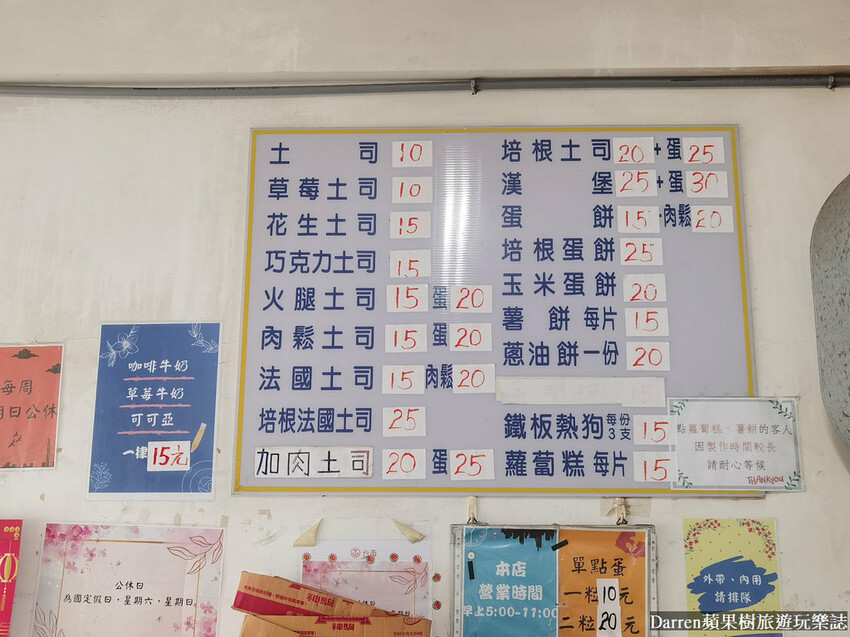 土司 10
草莓土司 10
花生土司 15
巧克力土司 15
火腿土司 15 蛋 20
肉鬆土司 15 蛋 20
法國土司 15 肉鬆 20
培根法國土司 25
加肉土司 20 蛋 25
培根土司 20 + 蛋 25
漢堡 25 + 蛋 30
蛋餅 15 肉鬆 20
培根蛋餅 25
玉米蛋餅 20
薯餅 每片 15
蔥油餅一份 20
鐵板熱狗 每份3支 15
蘿蔔糕 每片 15
點蘿蔔糕、薯餅的客人
因製作時間較長
請耐心等候
THANKYOU
咖啡牛奶
草莓牛奶
可可亞
一律 15元
每周
日公休
公休日
為國定假日,星期六,星期日
本店
營業時間
早上5:00-11:00
單點蛋
一粒10元
二粒20元
外帶、內用
請排隊
Darren蘋果樹旅遊玩樂誌